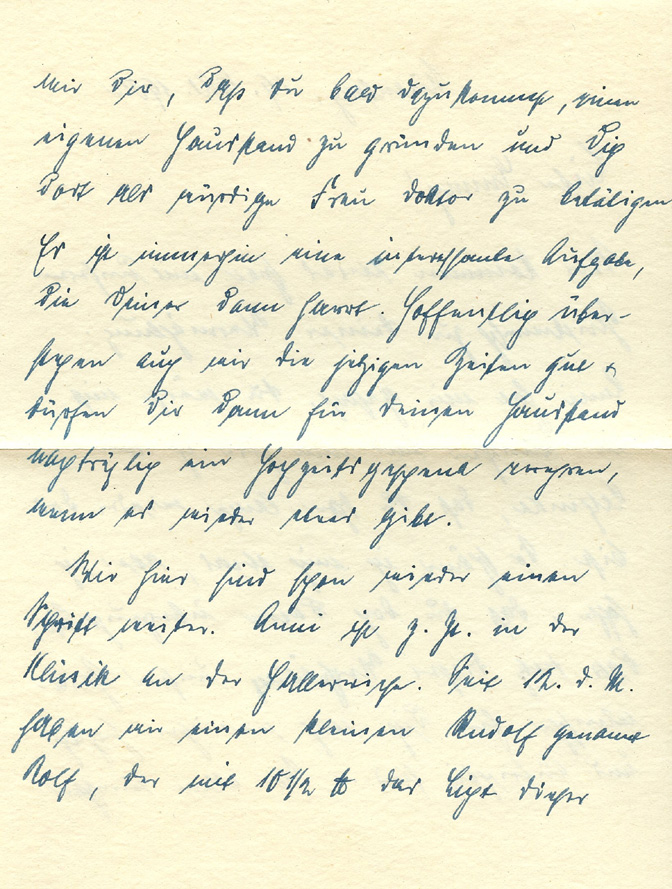 wir Dir, daß Du bald dazu kommst, einen
eigenen Hausstand zu gründen und Dich
dort als würdige Frau Doktor zu betätigen
Es ist immerhin eine interessante Aufgabe,
die Deiner dann harrt. Hoffentlich über-
stehen auch wir die jetzigen Zeiten gut &
dürfen Dir dann für Deinen Hausstand
nachträglich ein Hochzeitsgeschenk verehren,
wenn es wieder etwas gibt.
Wir hier sind schon wieder einen
Schritt weiter. Anni ist z. Zt. in der
Klinik an der Hallerwiese. Seit 12. d. M.
haben wir einen kleinen Rudolf genannt
Rolf, der mit 10 1/2 ℔ das Licht dieser